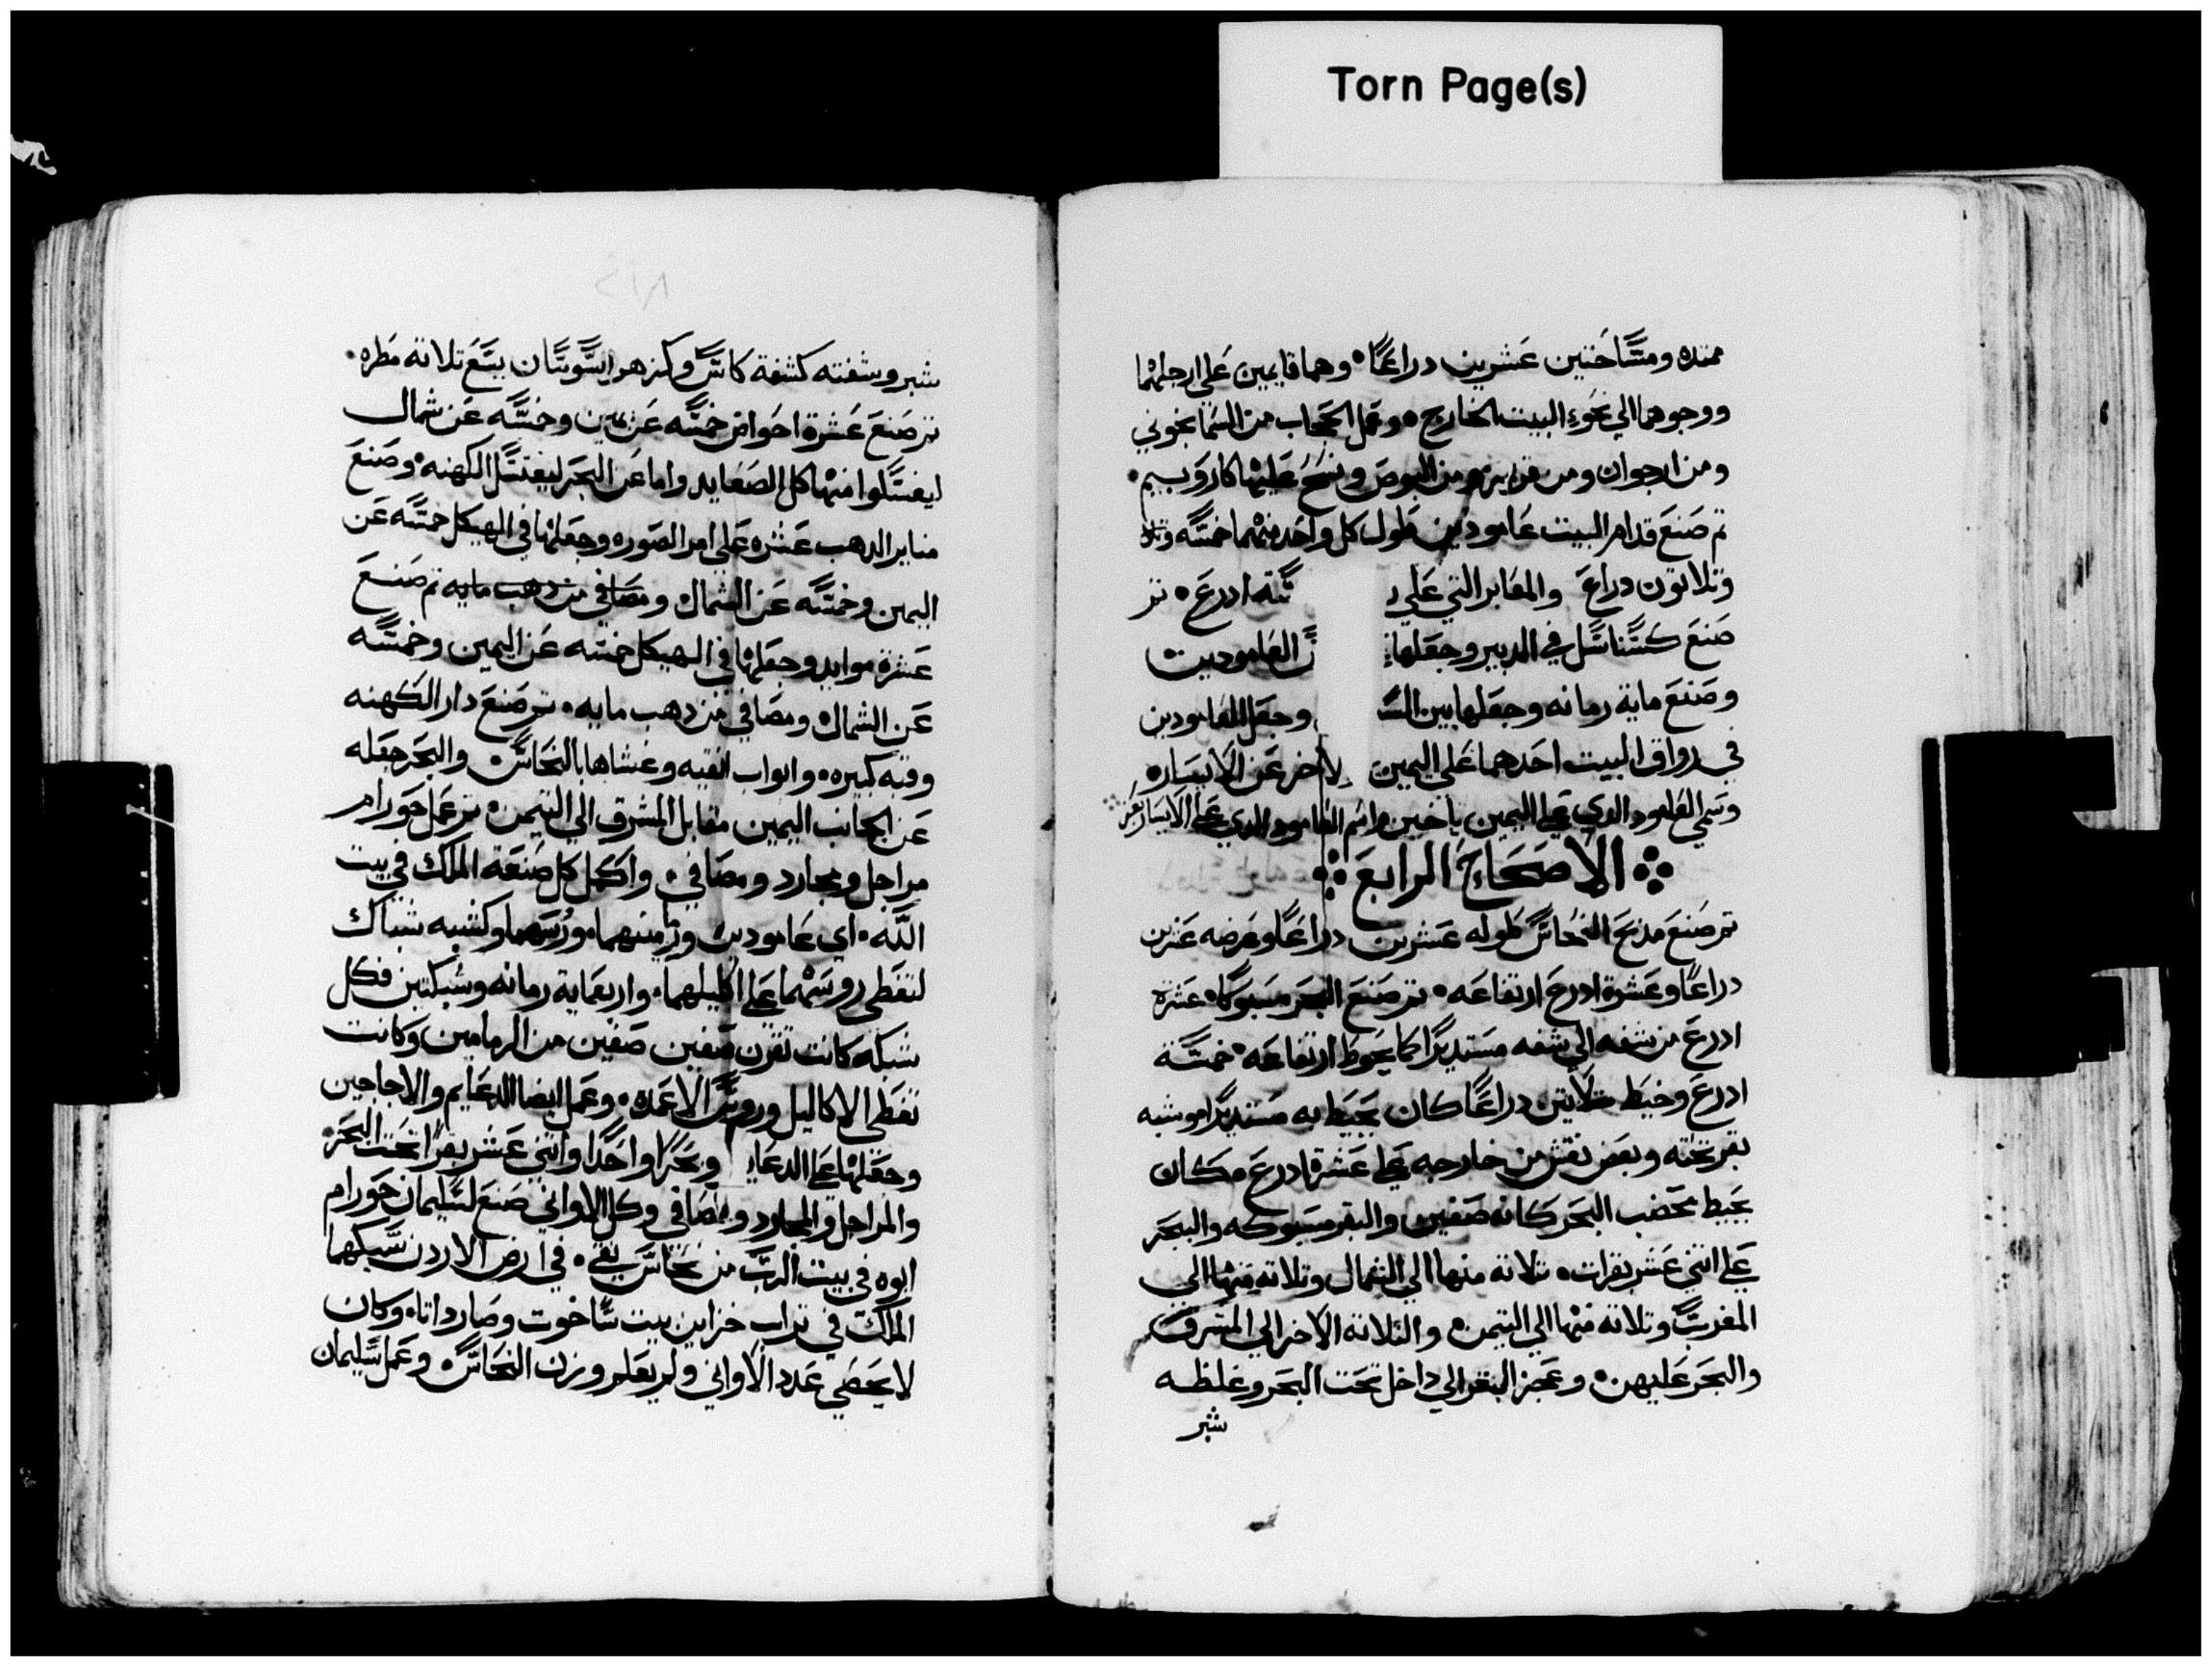 Torn Page(s)
ممتده ومساحتين عشرين دراعًا وهما قايمين على ارجلهما
ووجوههما الي نحو البيت الخارج وعمل الحجاب من السمانجوني
ومن ارجوان ومن قرمز ومن البوص ونسج عليها كاروبيم
تم صنع قدام البيت عامودين طول كل واحد منهما خمسه وتلا
وتلاتون دراع والمقابر التي علي ستة ادرع تم
صنع سناسل في الدبير وجعلها العامودين
وصنع ماية رمانه وجعلها بين الس وجعل العامودين
في رواق البيت احدهما على اليمين لاخر عن الايسار
وسمي العامود الدي علي اليمين ياخين واسم العامود الدي علي الايسار بعز
الاصحاح الرابع
تم صنع مدبح النحاس طوله عشرين دراعًا وعرضه عشرين
دراعًا وعشرة ادرع ارتفاعه تم صنع البحر مسبوكا عشرة
ادرع من شفه الي شفه مستديرًا كما يحوط ارتفاعه خمسة
ادرع وخيط تلاتين دراعًا كان يحيط به مستديرًا وشبه
بقر تحته وبعض نقش من خارجه علي عشرة ادرع مكان
يحيط بحضب البحر كانه صفين والبقر مسبوكه والبحر
علي اتني عشر بقرات تلاته منها الي الشمال وتلاته منها الي
المغرب وتلاته منها الي التيمن والتلاته الاخر الي المشرق
والبحر عليهن وعجز البقر الي داخل تحت البحر وغلظه
شبر
شبر وشفته كشفة كاس وكزهر السوسان يسع تلاتة مطره
تم صنع عشرة احواض خمسه عن يمين وخمسه عن شمال
ليغسلوا منها كل الصعايد واما عن البحر ليغتسل الكهنه وصنع
مناير الدهب عشره على امر الصوره وجعلها في الهيكل خمسه عن
اليمين وخمسه عن الشمال ومصافي من دهب مايه تم صنع
عشرة موايد وجعلها في الهيكل خمسه عن اليمين وخمسه
عن الشمال ومصافي من دهب مايه تم صنع دار الكهنه
وقبه كبيره وابواب القبه وغشاها بالنحاس والبحر جعله
عن الجانب اليمين مقابل المشرق الي التيمن تم عمل حورام
مراجل ومجارد ومصافي واكمل كل صنعة الملك في بيت
الله اي عامودين ورسهما وكشبه شباك
لتغطي روسهما على اكليلهما واربعماية رمانه وشبكتين فكل
شبكه كانت تقرن صفين صفين من الرمامين وكانت
تغطي الاكاليل وروس الاعمده وعمل ايضا الدعايم والاجاجين
وجعلها على الدعا وبحرًا واحدًا واتني عشر بقرًا تحت البحر
والمراجل والمجارد ومصافي وكل الاواني صنع لسليمان حورام
ابوه في بيت الرب من نحاس نقي في ارض الاردن سبكها
الملك في تراب خزاين بيت ساخوت وصاردانا وكان
لا يحصي عدد الاواني ولم يعلم وزن النحاس وعمل سليمان